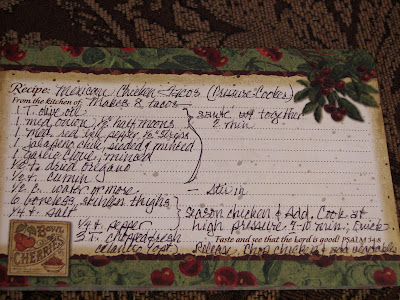 Recipe: Mexican Chicken Tacos (Pressure Cooker)
From the kitchen of Makes 8 tacos
1 T. olive oil
1 med. onion, ½ half moons
1 med. red bell pepper, ½" strips
1 jalapeno chile, seeded & minced
1 garlic clove, minced
½ t. dried oregano
¼ t. cumin
saute all together
2 min
½ c. water or more - Stir in
6 boneless, skinless thighs
¼ t. salt
¼ t. pepper
3 T. chopped fresh
cilantro (opt)
season chicken & Add. Cook at
high pressure 9-10 min; Quick
Taste and see that the Lord is good! PSALM 34:8
Release. Chop chicken & add vegetables
Bowl
of
CHERRIES